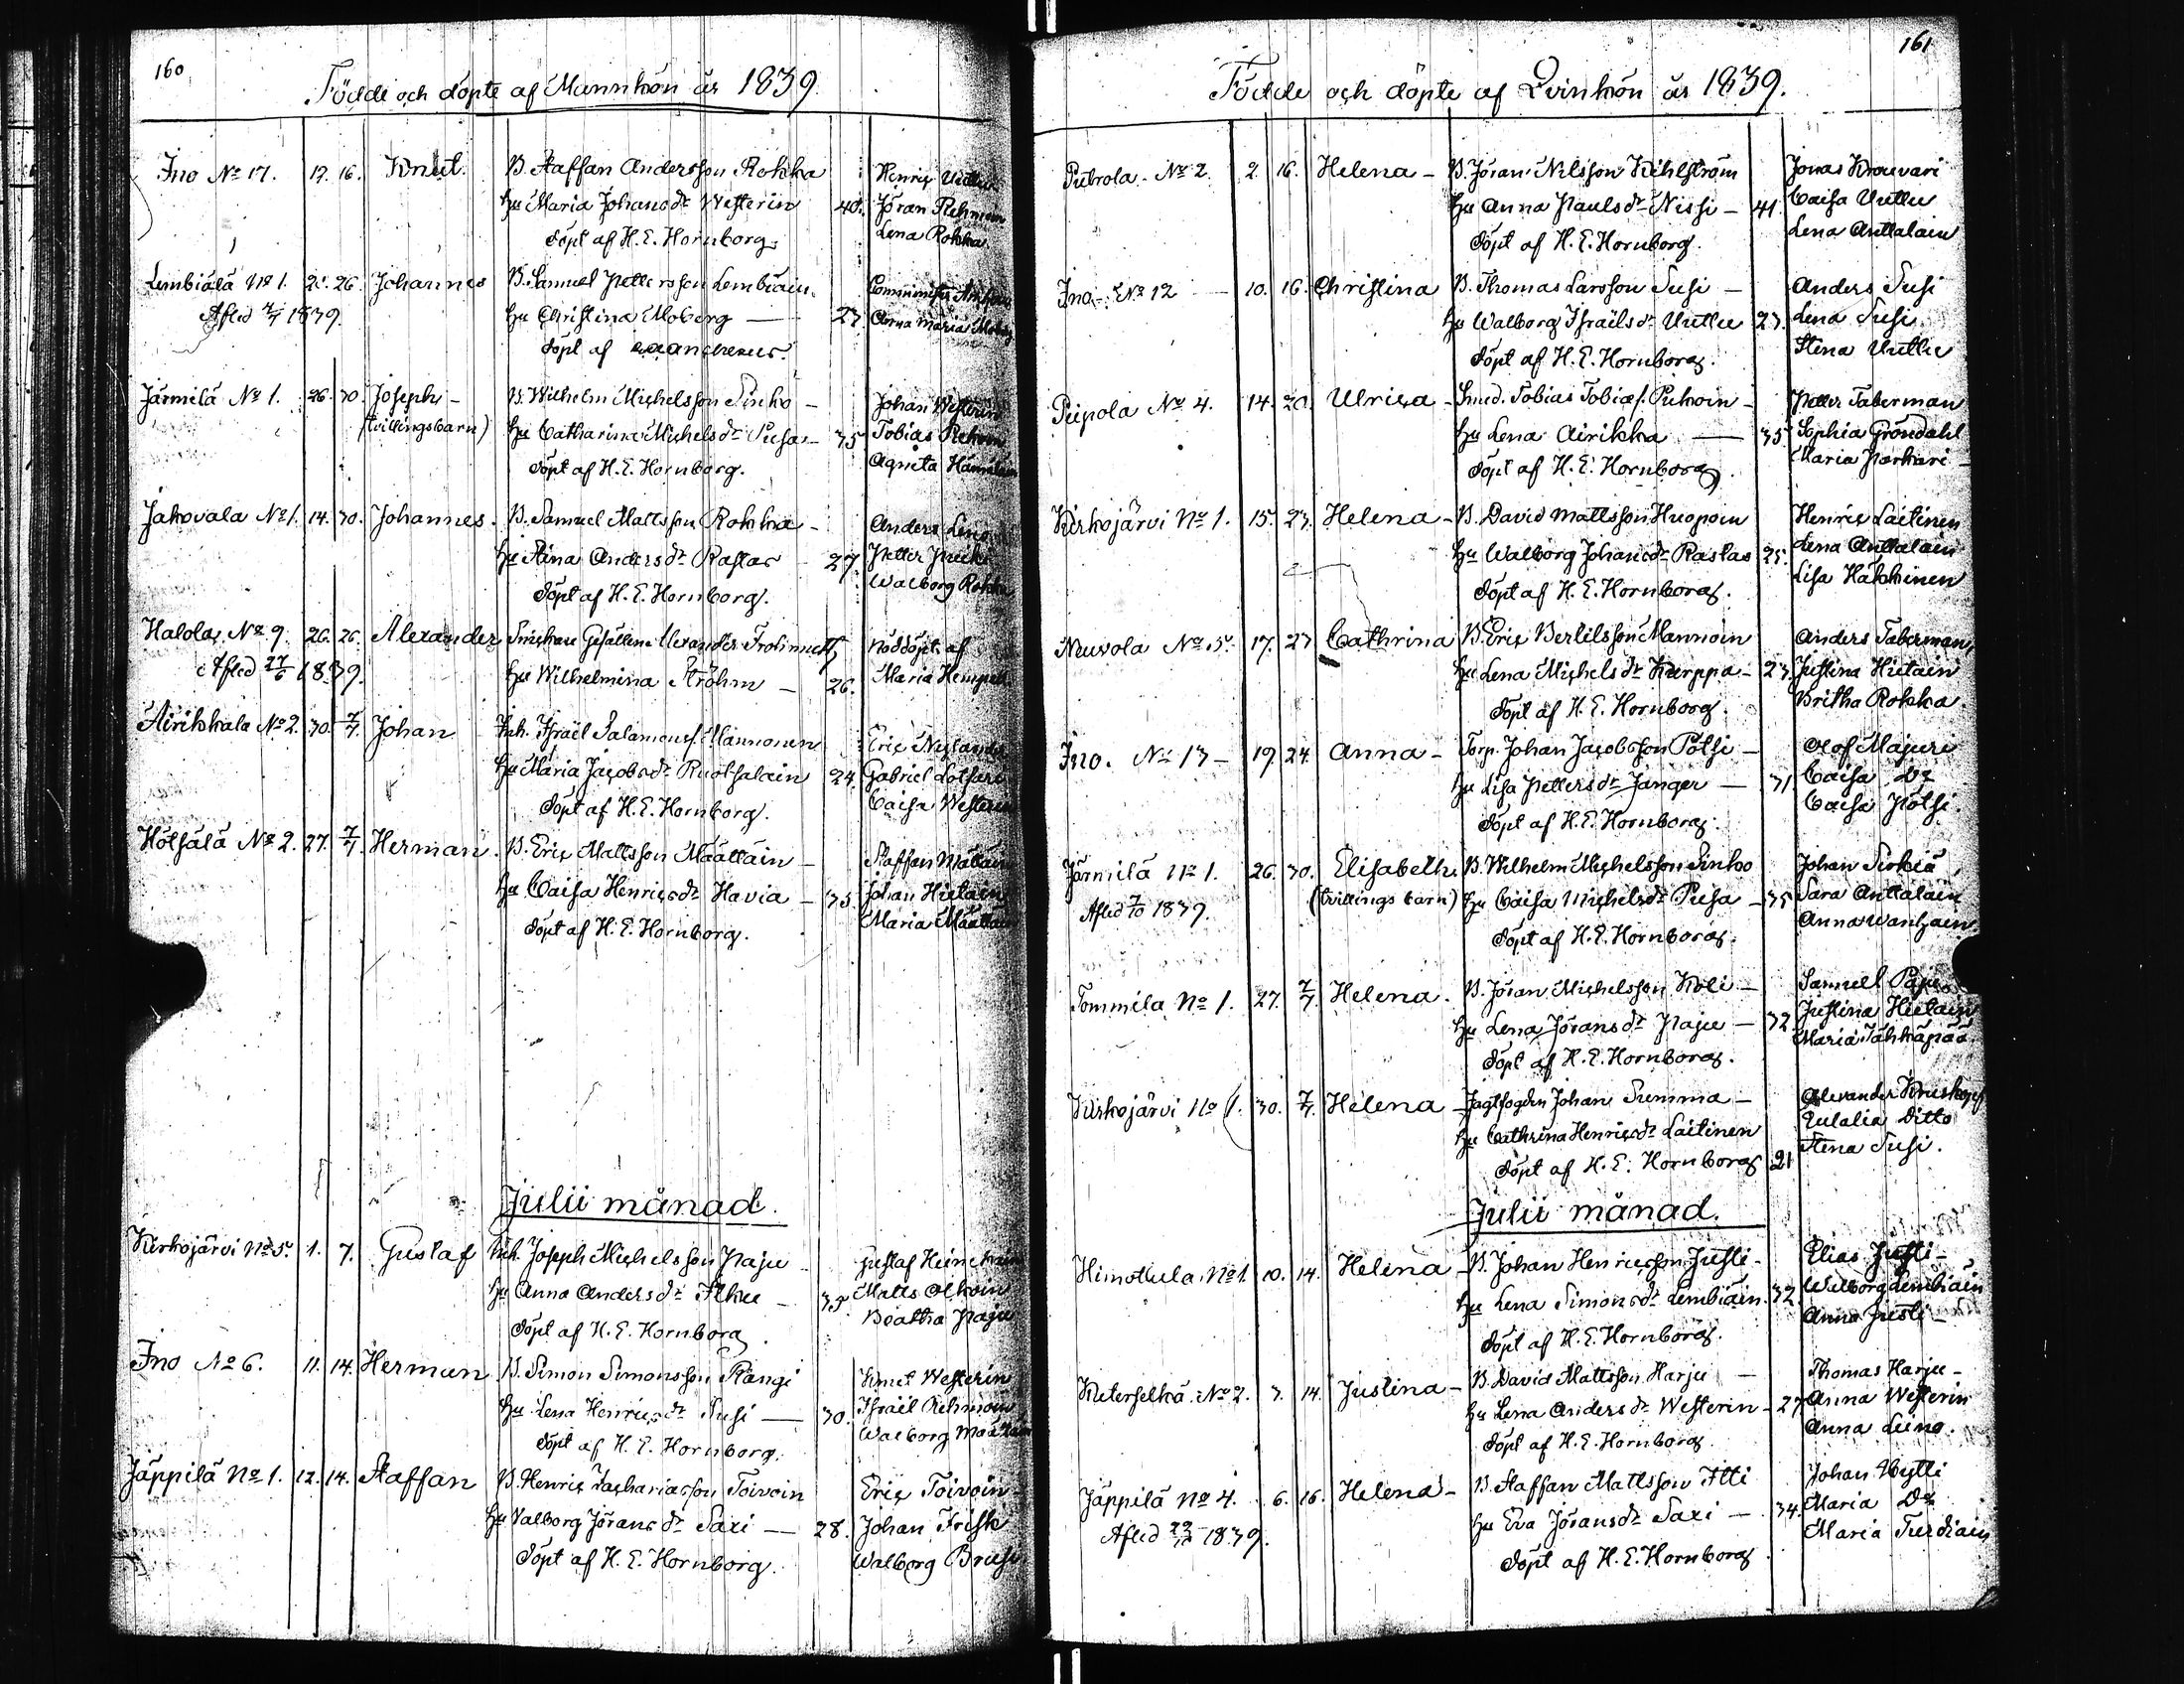 160
Födde och döpte af Mannkön år 1839.
Ino No 17. 12. 16. Knut. B. Staffan Andersson Rokka Henric
Hu Maria Johansdr Westerin 40. Jöran Rehmoin
döpt af H. E. Hornborg. Lena Rokka
Lembiälä No 1. 26. Johannes B. Samuel Pettersson Lembiäin.
Afled 1839. Hu Christina Moberg — 27. Anna Maria Moberg
döpt af
Järmilä No 1. 26. 30. Joseph – B. Wilhelm Michelsson Sinko – Johan Westerin
(tvillingsbarn) Hu Catharina Michelsdr Pusa – 35 Tobias
döpt af H. E. Hornborg. Agneta
Jakovala No 1. 14. 30. Johannes. B. Samuel Mattsson Rokka – Anders Leino
Hu Stina Andersdr Rastas 27 Petter
döpt af H. E. Hornborg. Walborg Rokka
Halola No 9. 26. 26. Alexander Alexander nöddöpt af
Afled 27/6 1839. Hu Wilhelmina Ströhm – 26. Maria
Airikkala No 2. 30. 7/7. Johan Inh. Israël Salamonss. Mannonen Eric
Hu Maria Jacobsdr Ruotsalain 24. Gabriel
döpt af H. E. Hornborg. Caisa Westerin
Hötsälä No 2. 27. 7/7. Herman. B. Eric Mattsson Määttäin – Staffan Mättäin
Hu Caisa Henricsdr Havia – 35. Johan Hietain
döpt af H. E. Hornborg. Maria Määttäin
Julii månad.
Kirkojärvi No 5. 1. 7. Gustaf Inh. Joseph Michelsson Paju Gustaf
Hu Anna Andersdr Ilku – 35. Matts
döpt af H. E. Hornborg. Beatha Paju
Ino No 6. 11. 14. Herman B. Simon Simonsson Stångi Knut Westerin
Hu Lena Henricsdr Susi — 30. Israël Rehmoin
döpt af H. E. Hornborg. Walborg Määttäin
Jäppilä No 1. 12. 14. Staffan B. Henric Zachariasson Toivoin Eric Toivoin –
Hu Valborg Jöransdr Saxi — 28. Johan Frisk
döpt af H. E. Hornborg. Walborg
161
Födde och döpte af Qvinkön år 1839.
No 2. 2. 16. Helena – B. Jöran Nilsson Kihlström Jonas
Hu Anna Paulsdr Nissi – 41. Caisa Uuttu
döpt af H. E. Hornborg. Lena Anttalain
Ino – No 12 — 10. 16. Christina B. Thomas Larsson Susi – Anders Susi
Hu Walborg Israëlsdr Uuttu 23. Lena Susi.
döpt af H. E. Hornborg. Stena Uuttu
Peipola No 4. 14. 20. Ulrica – Smed. Tobias Tobiæs. – Petter Taberman
Hu Lena Airikka — 35 Sophia Gröndahl
döpt af H. E. Hornborg. Maria
Kirkojärvi No 1. 15. 23. Helena – B. David Mattsson Huopoin Henric Laitinen
Hu Walborg Johansdr Rastas 25. Lena Anttalain
döpt af H. E. Hornborg. Lisa Häkkinen
Neuvola No 5. 17. 23 Cathrina B. Eric Bertilsson Mannoin Anders Taberman,
Hu Lena Michelsdr Kurppa – 23. Justina Hietain
döpt af H. E. Hornborg. Britha Rokka.
Ino. No 13 – 19. 24. Anna – Torp. Johan Jacobsson Pötsi – Olof Majuri
Hu Lisa Pettersdr Jänger — 31 Caisa Do
döpt af H. E. Hornborg. Caisa Pötsi
Järmilä No 1. 26. 30. Elisabeth. B. Wilhelm Michelsson Sinko Johan
Afled 7/10 1839. (tvillings barn) Hu Caisa Michelsdr Pusa – 35 Sara Anttalain
döpt af H. E. Hornborg. Anna
Tommila No 1. 27. 7/7. Helena. B. Jöran Michelsson Koli – Samuel Paju
Hu Lena Jöransdr Paju – 32. Justina Hietain
döpt af H. E. Hornborg. Maria Tähkäpää
Kirkojärvi No 1. 30. 7/7. Helena – Jagtfogden Johan Summa – Alexander
Hu Cathrina Henricsdr Laitinen Eulalia Ditto
döpt af H. E. Hornborg 21 Stena Susi.
Julii månad.
Himottula No 1. 10. 14. Helena – B. Johan Henricsson Justi – Elias Justi –
Hu Lena Simonsdr Lembiäin 32 Walborg Lembiäin
döpt af H. E. Hornborg. Anna Justi –
Kuterselkä No 2. 7. 14. Justina – B. David Mattsson Harju — Thomas Harju –
Hu Lena Andersdr Westerin – 27 Anna Westerin
döpt af H. E. Hornborg. Anna Leino.
Jäppilä No 4. 6. 16. Helena – B. Staffan Mattsson Itti Johan Hytti
Afled 1839. Hu Eva Jöransdr Saxi — 34. Maria Do
döpt af H. E. Hornborg. Maria Turdiain